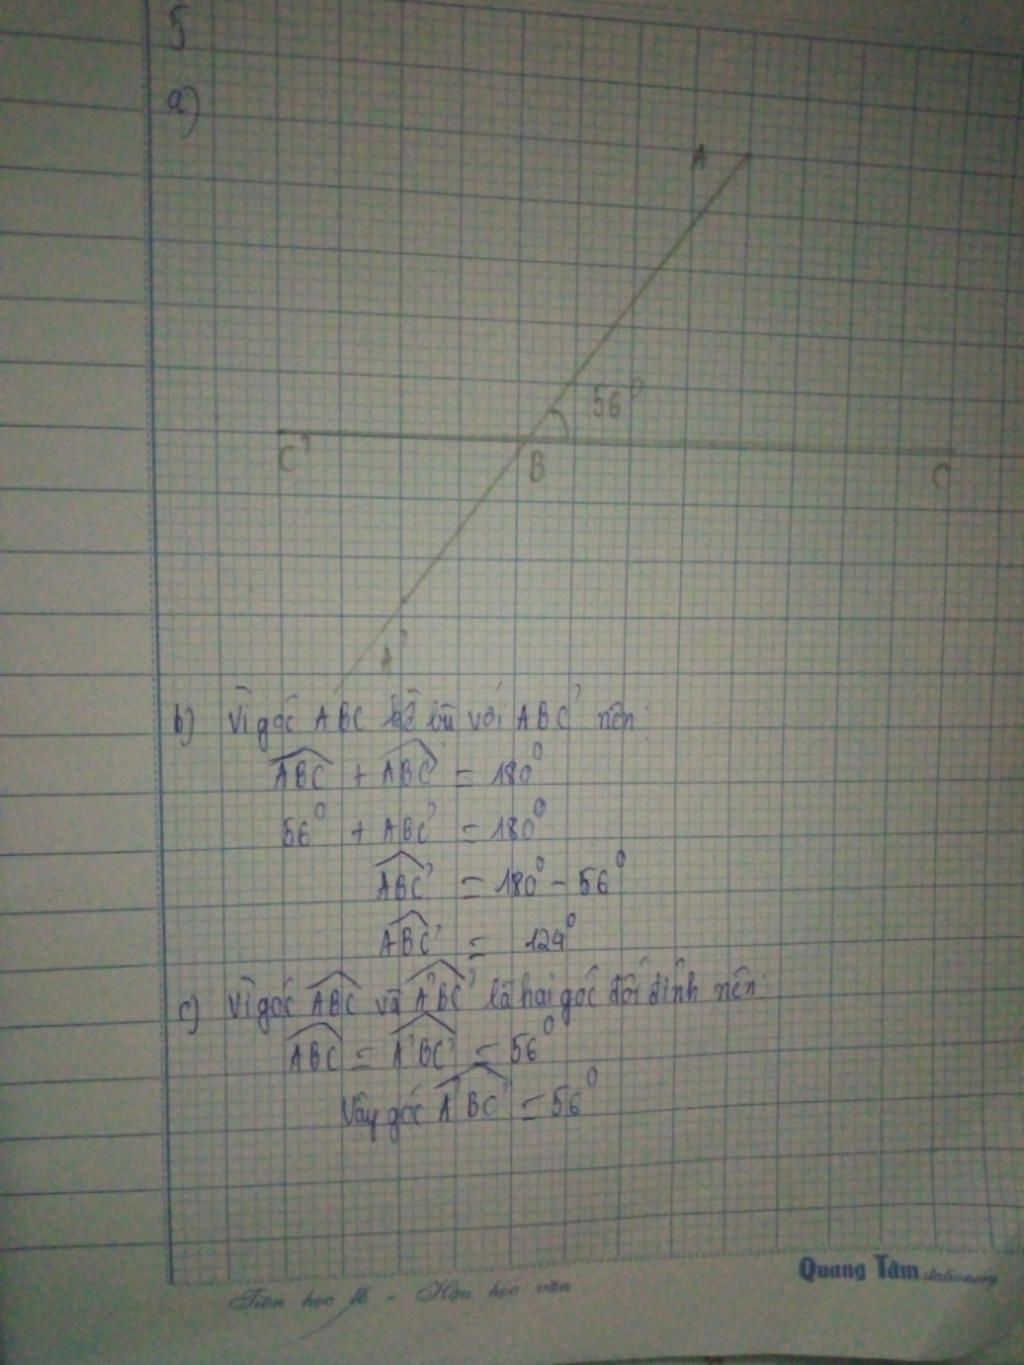 5
a)
A
56°
C'
B
C
A'
b) Vì góc ABC kề bù với ABC' nên:
ABC + ABC' = 180°
56° + ABC' = 180°
ABC' = 180° - 56°
ABC' = 124°
c) Vì góc ABC và A'BC' là hai góc đối đỉnh nên:
ABC = A'BC' = 56°
Vậy góc A'BC' = 56°
Quang Tâm stationery
Tiên học lễ - Hậu học văn